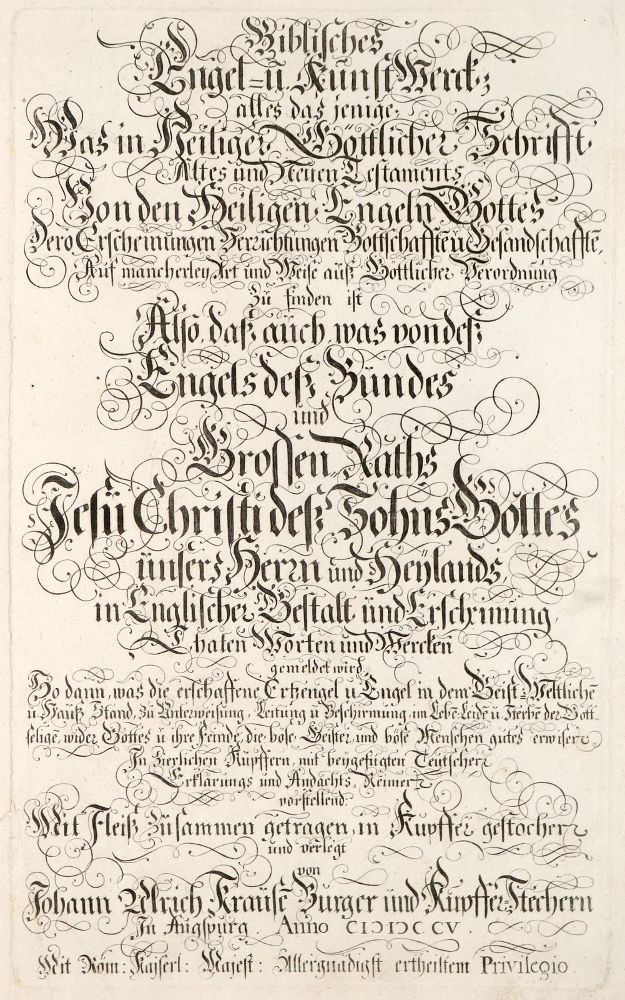 Biblisches
Engel- u. Kunst Werck;
alles das jenige,
Was in Heiliger Göttlicher Schrifft
Altes und Neuen Testaments
Von den Heiligen Engeln Gottes
dero Erscheinungen Verrichtungen Bottschafften Gesandschaffte,
Auf mancherley Art und Weise auß Göttlicher Verordnung
zu finden ist
Also, daß auch was von deß
Engels deß Bundes
und
Grossen Raths
Jesu Christi deß Sohns Gottes
unsers Herrn und Heylands
in Englischer Gestalt und Erscheinung
Thaten Worten und Wercken
gemeldet wird
So dann, was die erschaffene Ertzengel u Engel in dem Geist-Weltlichē
u Hauß Stand, zu Unterweisung, Leitung u Beschirmung, im Lebē Leidē u Sterbē der Gott
selige, wider Gottes u ihre Feinde, die böse Geister, und böse Menschen gutes erwisen
In Zierlichen Kupffern, mit beygefügten Teutschen
Erklärungs und Andachts Reimen
vorstellend:
Mit Fleiß zusammen getragen, in Kupffer gestochen
und verlegt
von
Johann Ulrich Krausē Burger und Kupffer-Stechern
In Augspurg. Anno CIƆIƆCCV.
Mit Röm: Kaiserl: Majest: Allergnädigst ertheiltem Privilegio.